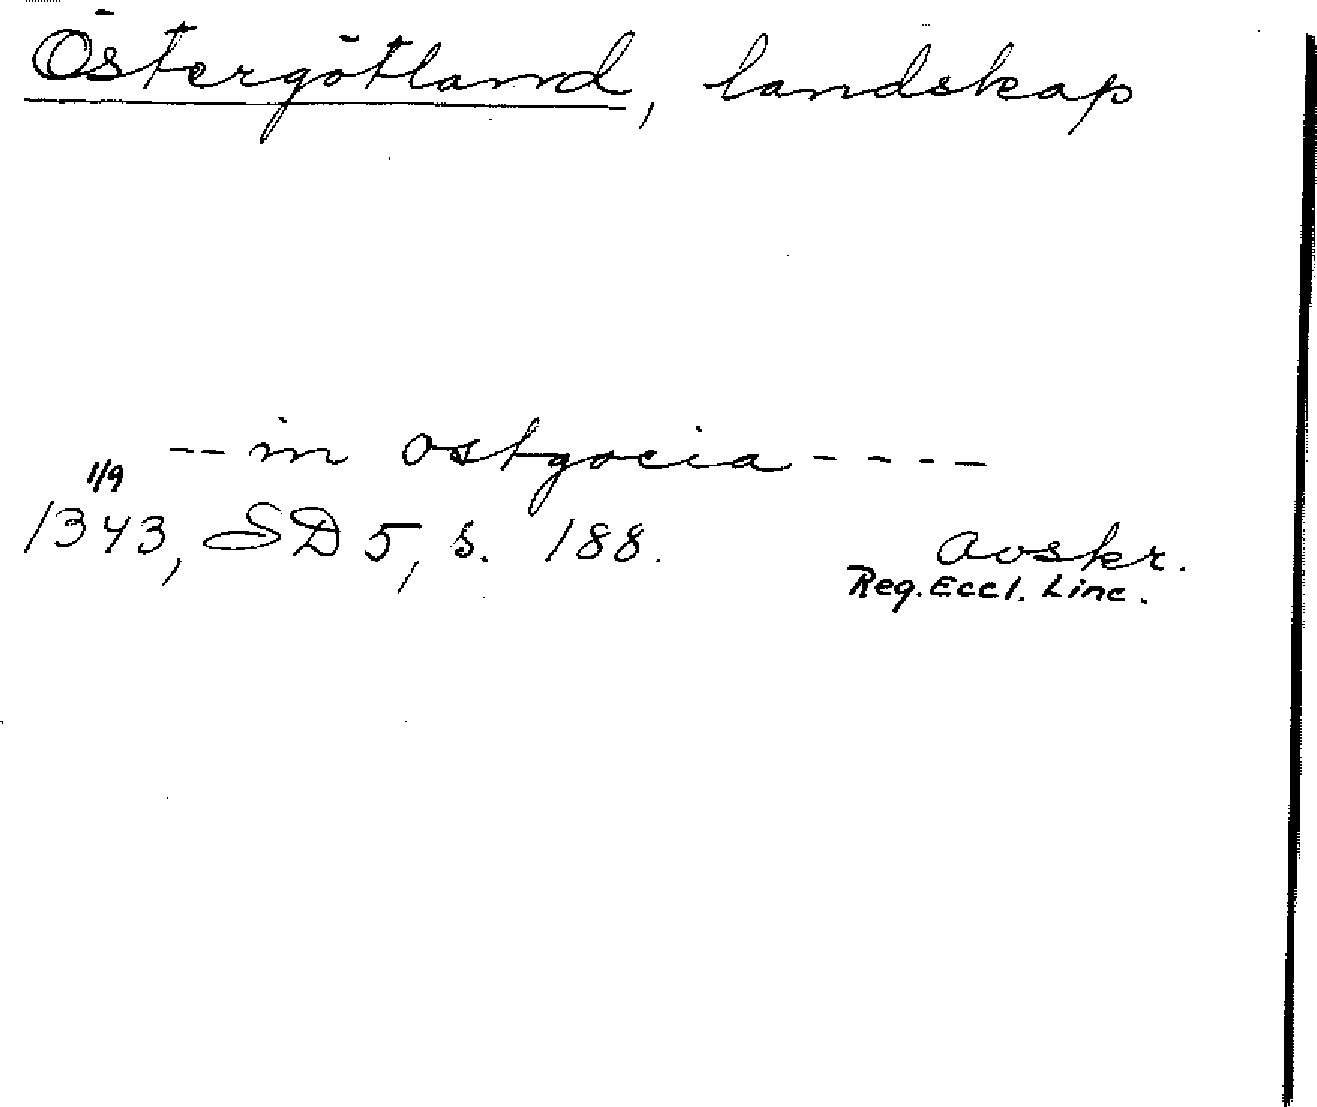 Östergötland, landskap
-- in ostgocia ----
1/9
1343, SD 5, s. 188. avskr.
Reg. Eccl. Linc.